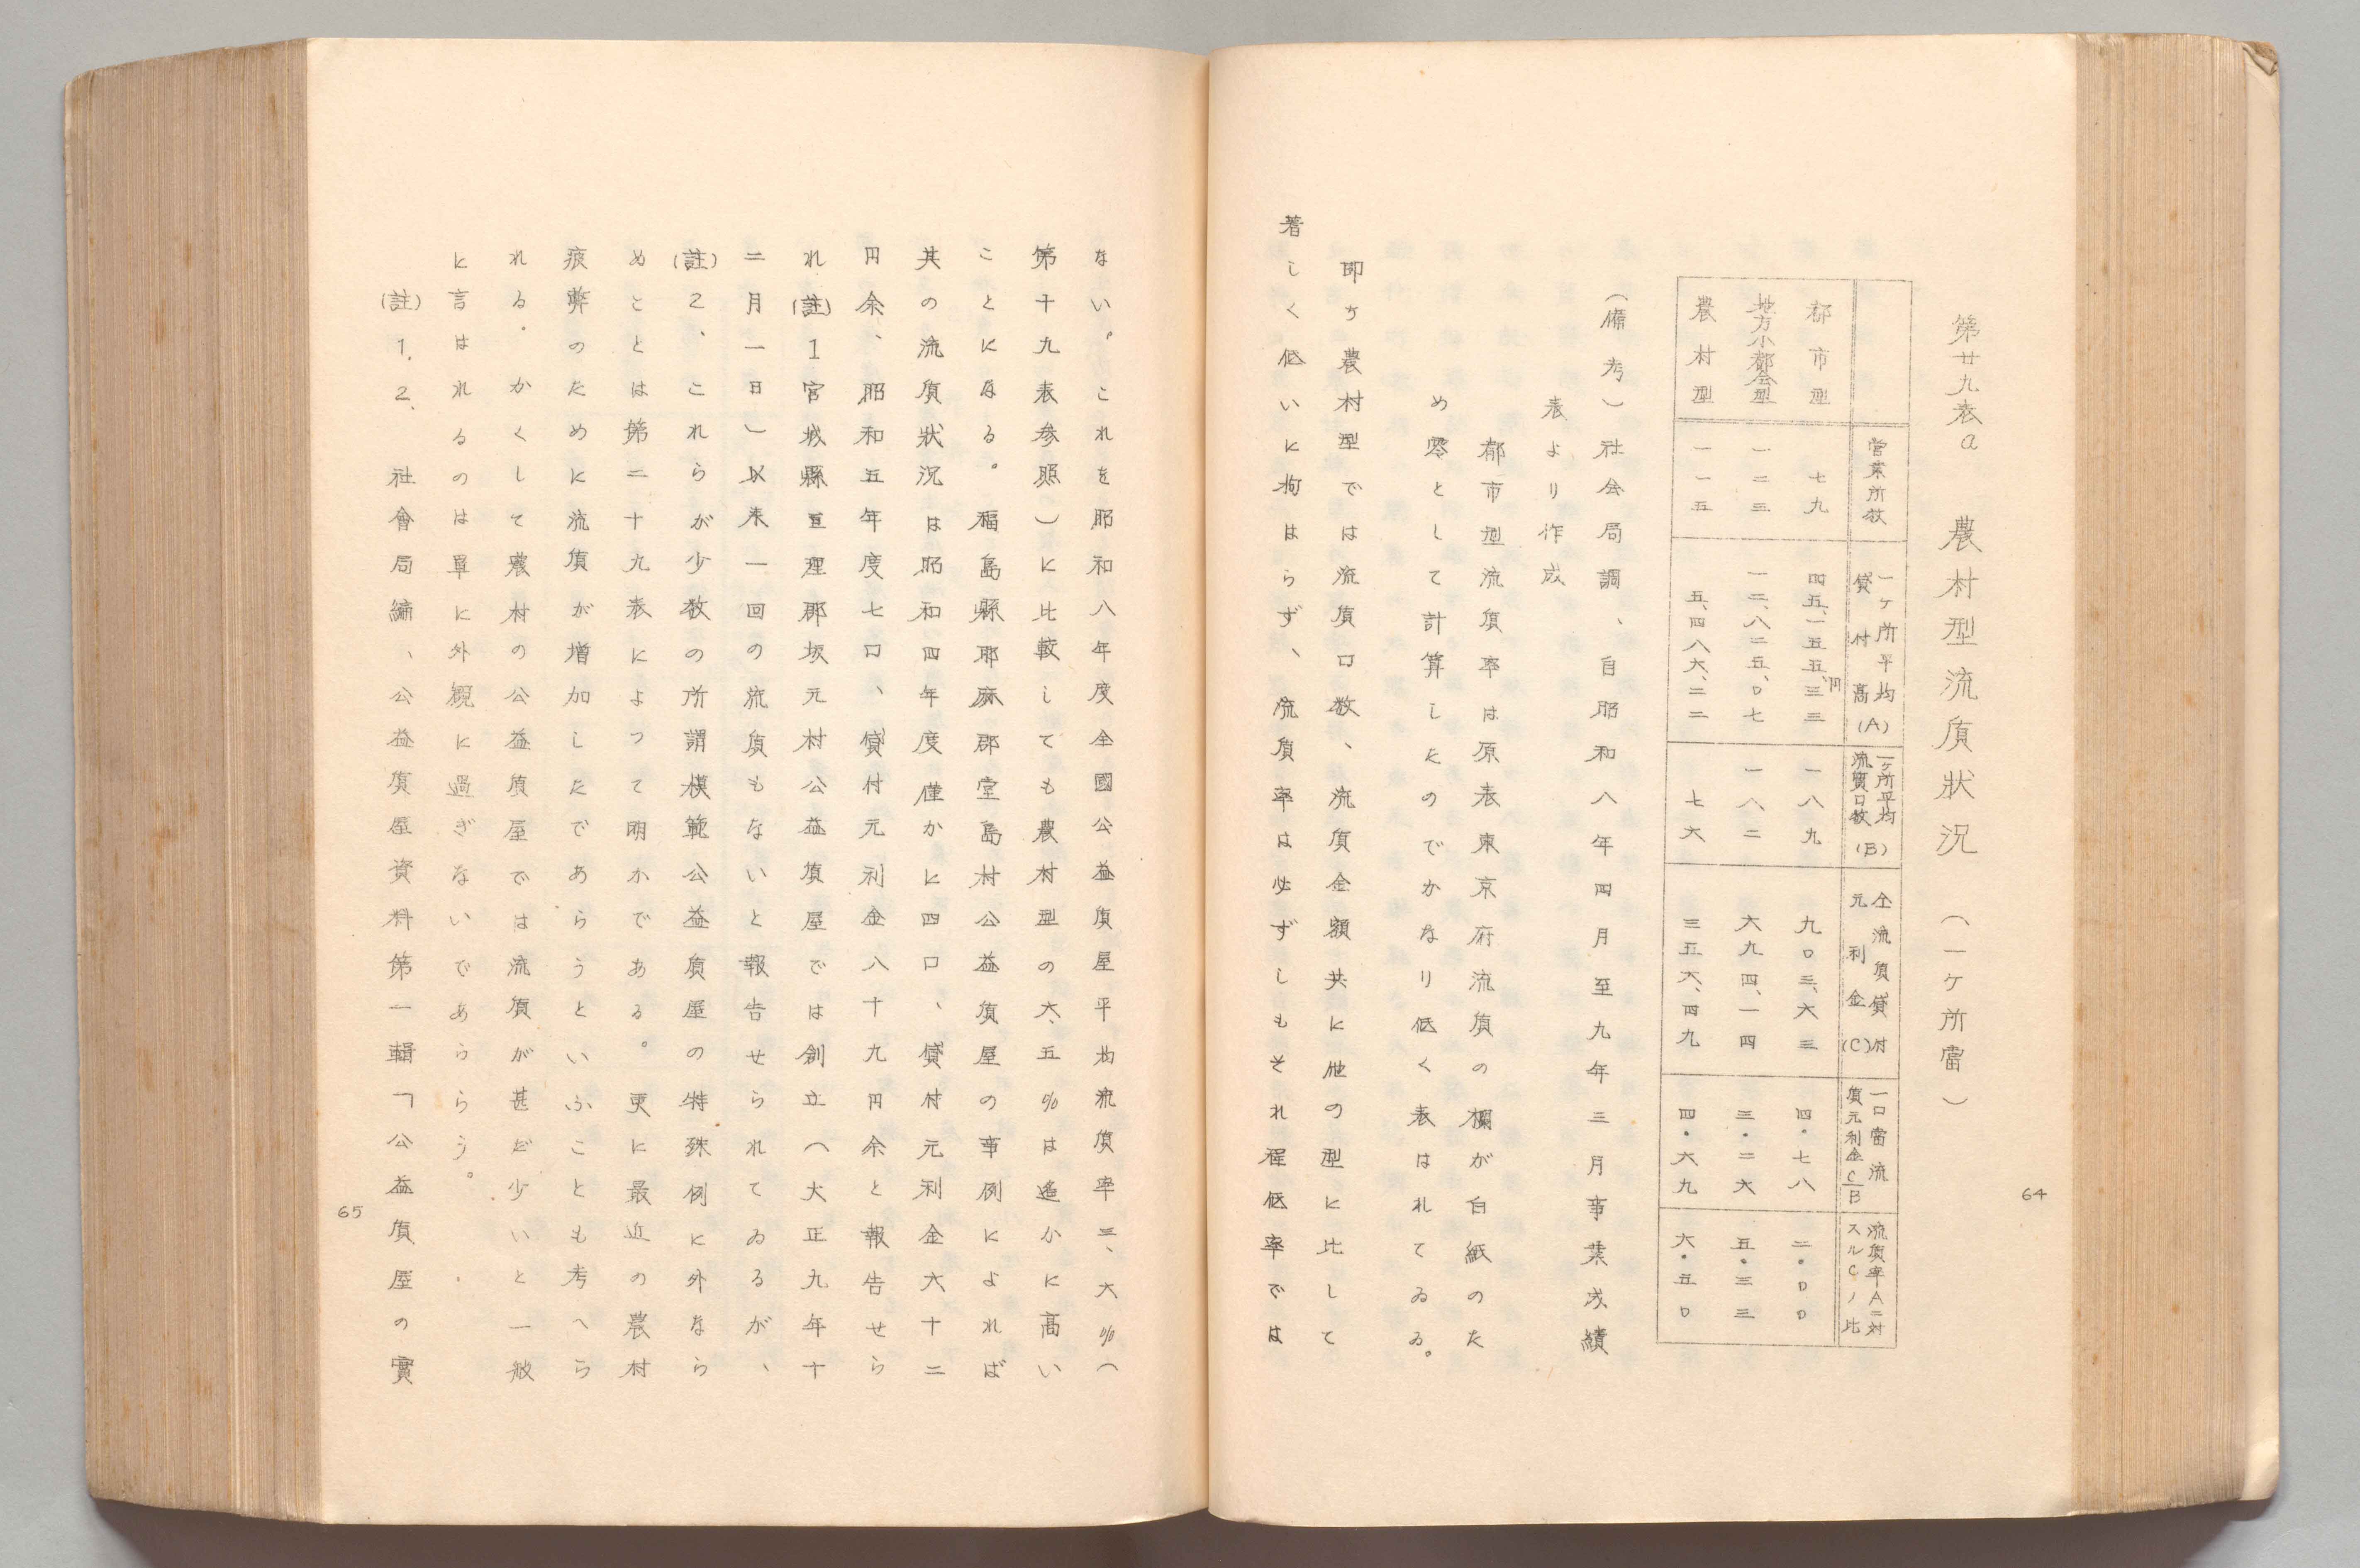 第廿九表a 農村型流質狀況 (一ケ所當)
營業所数
一ケ所平均
貸付高(A)
一ヶ所平均
流質口数(B)
仝流質貸付
元利金(C)
一口當流
質元利金C/B
流質率Aニ対
スルCノ比
都市型 七九 四五、一五五、三三円 一八九 九〇三、六三 四・七八 二・〇〇
地方小都会型 一二三 一二、八二五、〇七 一八、二 六九四、一四 三・二六 五・三三
農村型 一一五 五、四八六、二二 七六 三五六、四九 四・六九 六・五〇
(備考)社会局調、自昭和八年四月至九年三月事業成績
表より作成
都市型流質率は原表東京府流質の欄が白紙のた
め零として計算したのでかなり低く表はれてゐる。
即ヶ農村型では流質口数、流質金額共に他の型に比して
著しく低いに拘はらず、流質率は必ずしもそれ程低率では
64
ない。これを昭和八年度全國公益質屋平均流質率三、六%(
第十九表参照)に比較しても農村型の六、五%は遙かに高い
ことになる。福島縣耶麻郡堂島村公益質屋の事例によれば
其の流質狀況は昭和四年度僅かに四口、貸付元利金六十二
円余、昭和五年度七口、貸付元利金八十九円余と報告せら
れ(註)1宮城縣亘理郡坂元村公益質屋では創立(大正九年十
二月一日)以来一回の流質もないと報告せられてゐるが、
(註)2、これらが少数の所謂模範公益質屋の特殊例に外なら
めことは第二十九表によつて明かである。更に最近の農村
疲弊のために流質が増加したであらうといふことも考へら
れる.かくして農村の公益質屋では流質が甚だ少いと一般
に言はれるのは単に外観に過ぎないであらう。
(註)1.2、社會局編、公益質屋資料第一輯「公益質屋の實
65